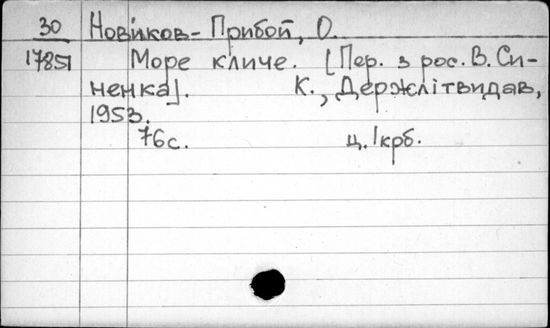 30 Новиков-Прибой, О.
17851 Море кличе. [Пер. з рос. В. Си-
ненка]. К., Держлітвидав,
1953.
76с. ц. 1крб.